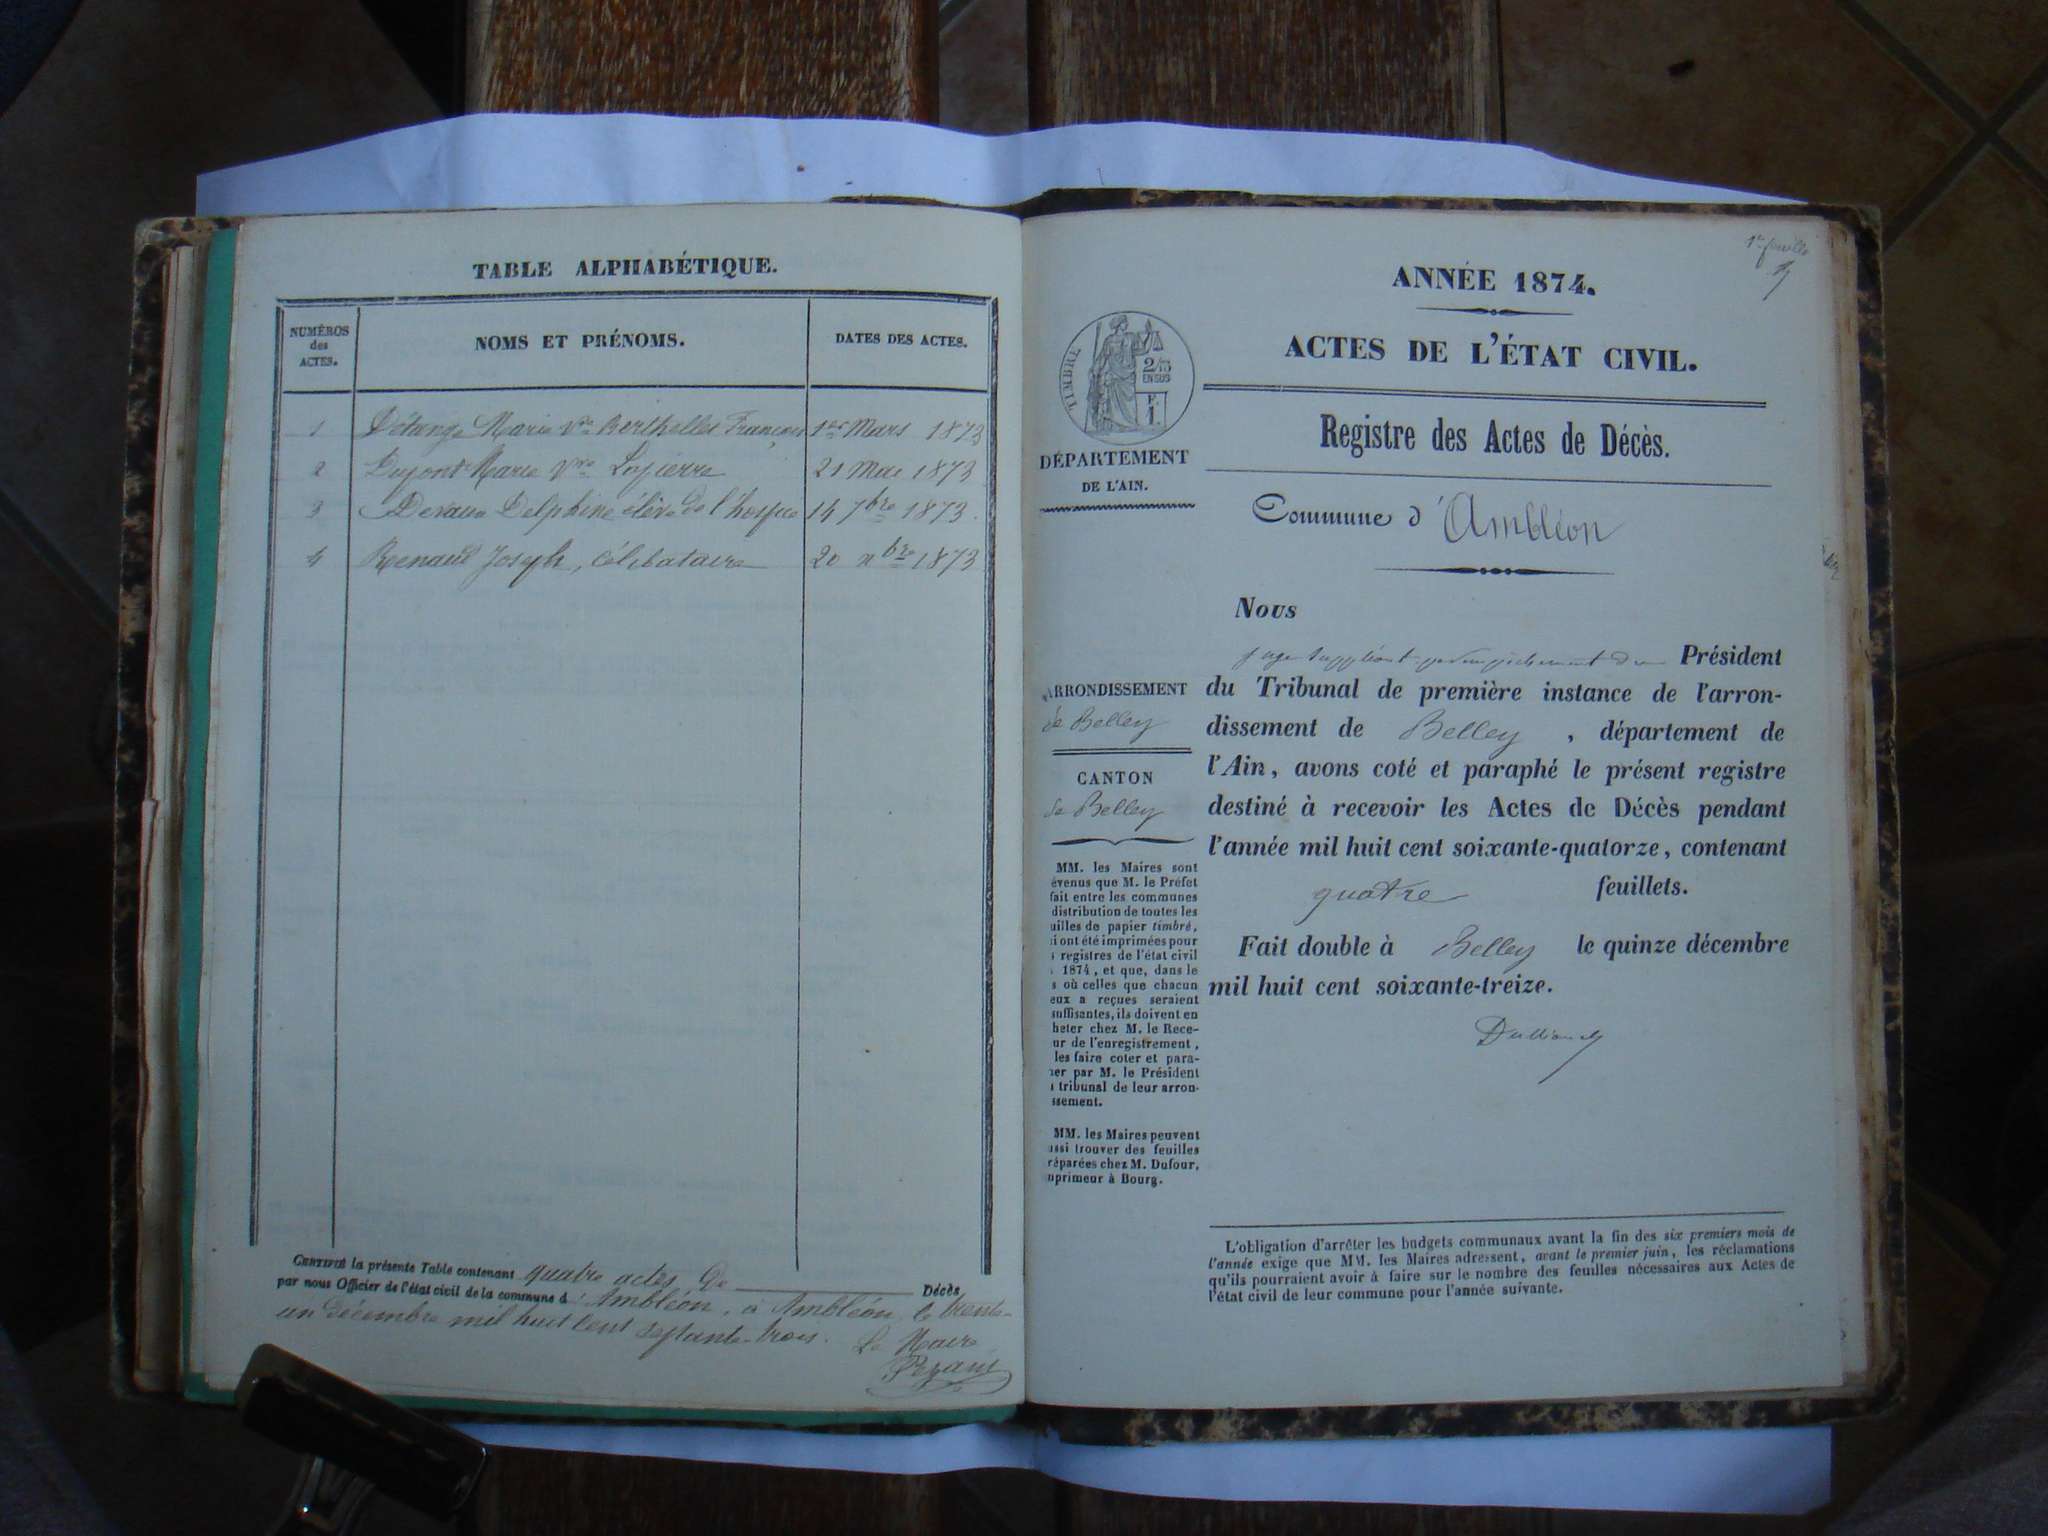 TABLE ALPHABÉTIQUE.
NUMÉROS
des
ACTES.
NOMS ET PRÉNOMS.
DATES DES ACTES.
1 Marie Vve Berthellet François 1er Mars 1873
2 Marie Vve Lapierre 21 Mai 1873
3 Devaux Delphine élève de l'hospice 14 7bre 1873.
4 Renaud Joseph, célibataire 20 xbre 1873
CERTIFIÉ la présente Table contenant quatre actes De Décès
par nous Officier de l'état civil de la commune d'Ambléon, à Ambléon, le trente-
un Décembre mil huit cent septante-trois.
Le Maire
Pezant
1er feuille
ANNÉE 1874.
ACTES DE L'ÉTAT CIVIL.
TIMBRE
2/10
EN SUS
F.
1.
Registre des Actes de Décès.
DÉPARTEMENT
DE L'AIN.
Commune d'Ambléon
NOUS
juge suppléant par empêchement du Président
du Tribunal de première instance de l'arron-
dissement de Belley, département de
l'Ain, avons coté et paraphé le présent registre
destiné à recevoir les Actes de Décès pendant
l'année mil huit cent soixante-quatorze, contenant
quatre feuillets.
Fait double à Belley le quinze décembre
mil huit cent soixante-treize.
ARRONDISSEMENT
de Belley
CANTON
de Belley
MM. les Maires sont
évenus que M. le Préfet
fait entre les communes
distribution de toutes les
uilles de papier timbré,
i ont été imprimées pour
s registres de l'état civil
1874, et que, dans le
s où celles que chacun
eux a reçues seraient
suffisantes, ils doivent en
heter chez M. le Rece-
ur de l'enregistrement,
les faire coter et para-
her par M. le Président
u tribunal de leur arron-
ssement.
MM. les Maires peuvent
ussi trouver des feuilles
réparées chez M. Dufour,
mprimeur à Bourg.
L'obligation d'arrêter les budgets communaux avant la fin des six premiers mois de
l'année exige que MM. les Maires adressent, avant le premier juin, les réclamations
qu'ils pourraient avoir à faire sur le nombre des feuilles nécessaires aux Actes de
l'état civil de leur commune pour l'année suivante.